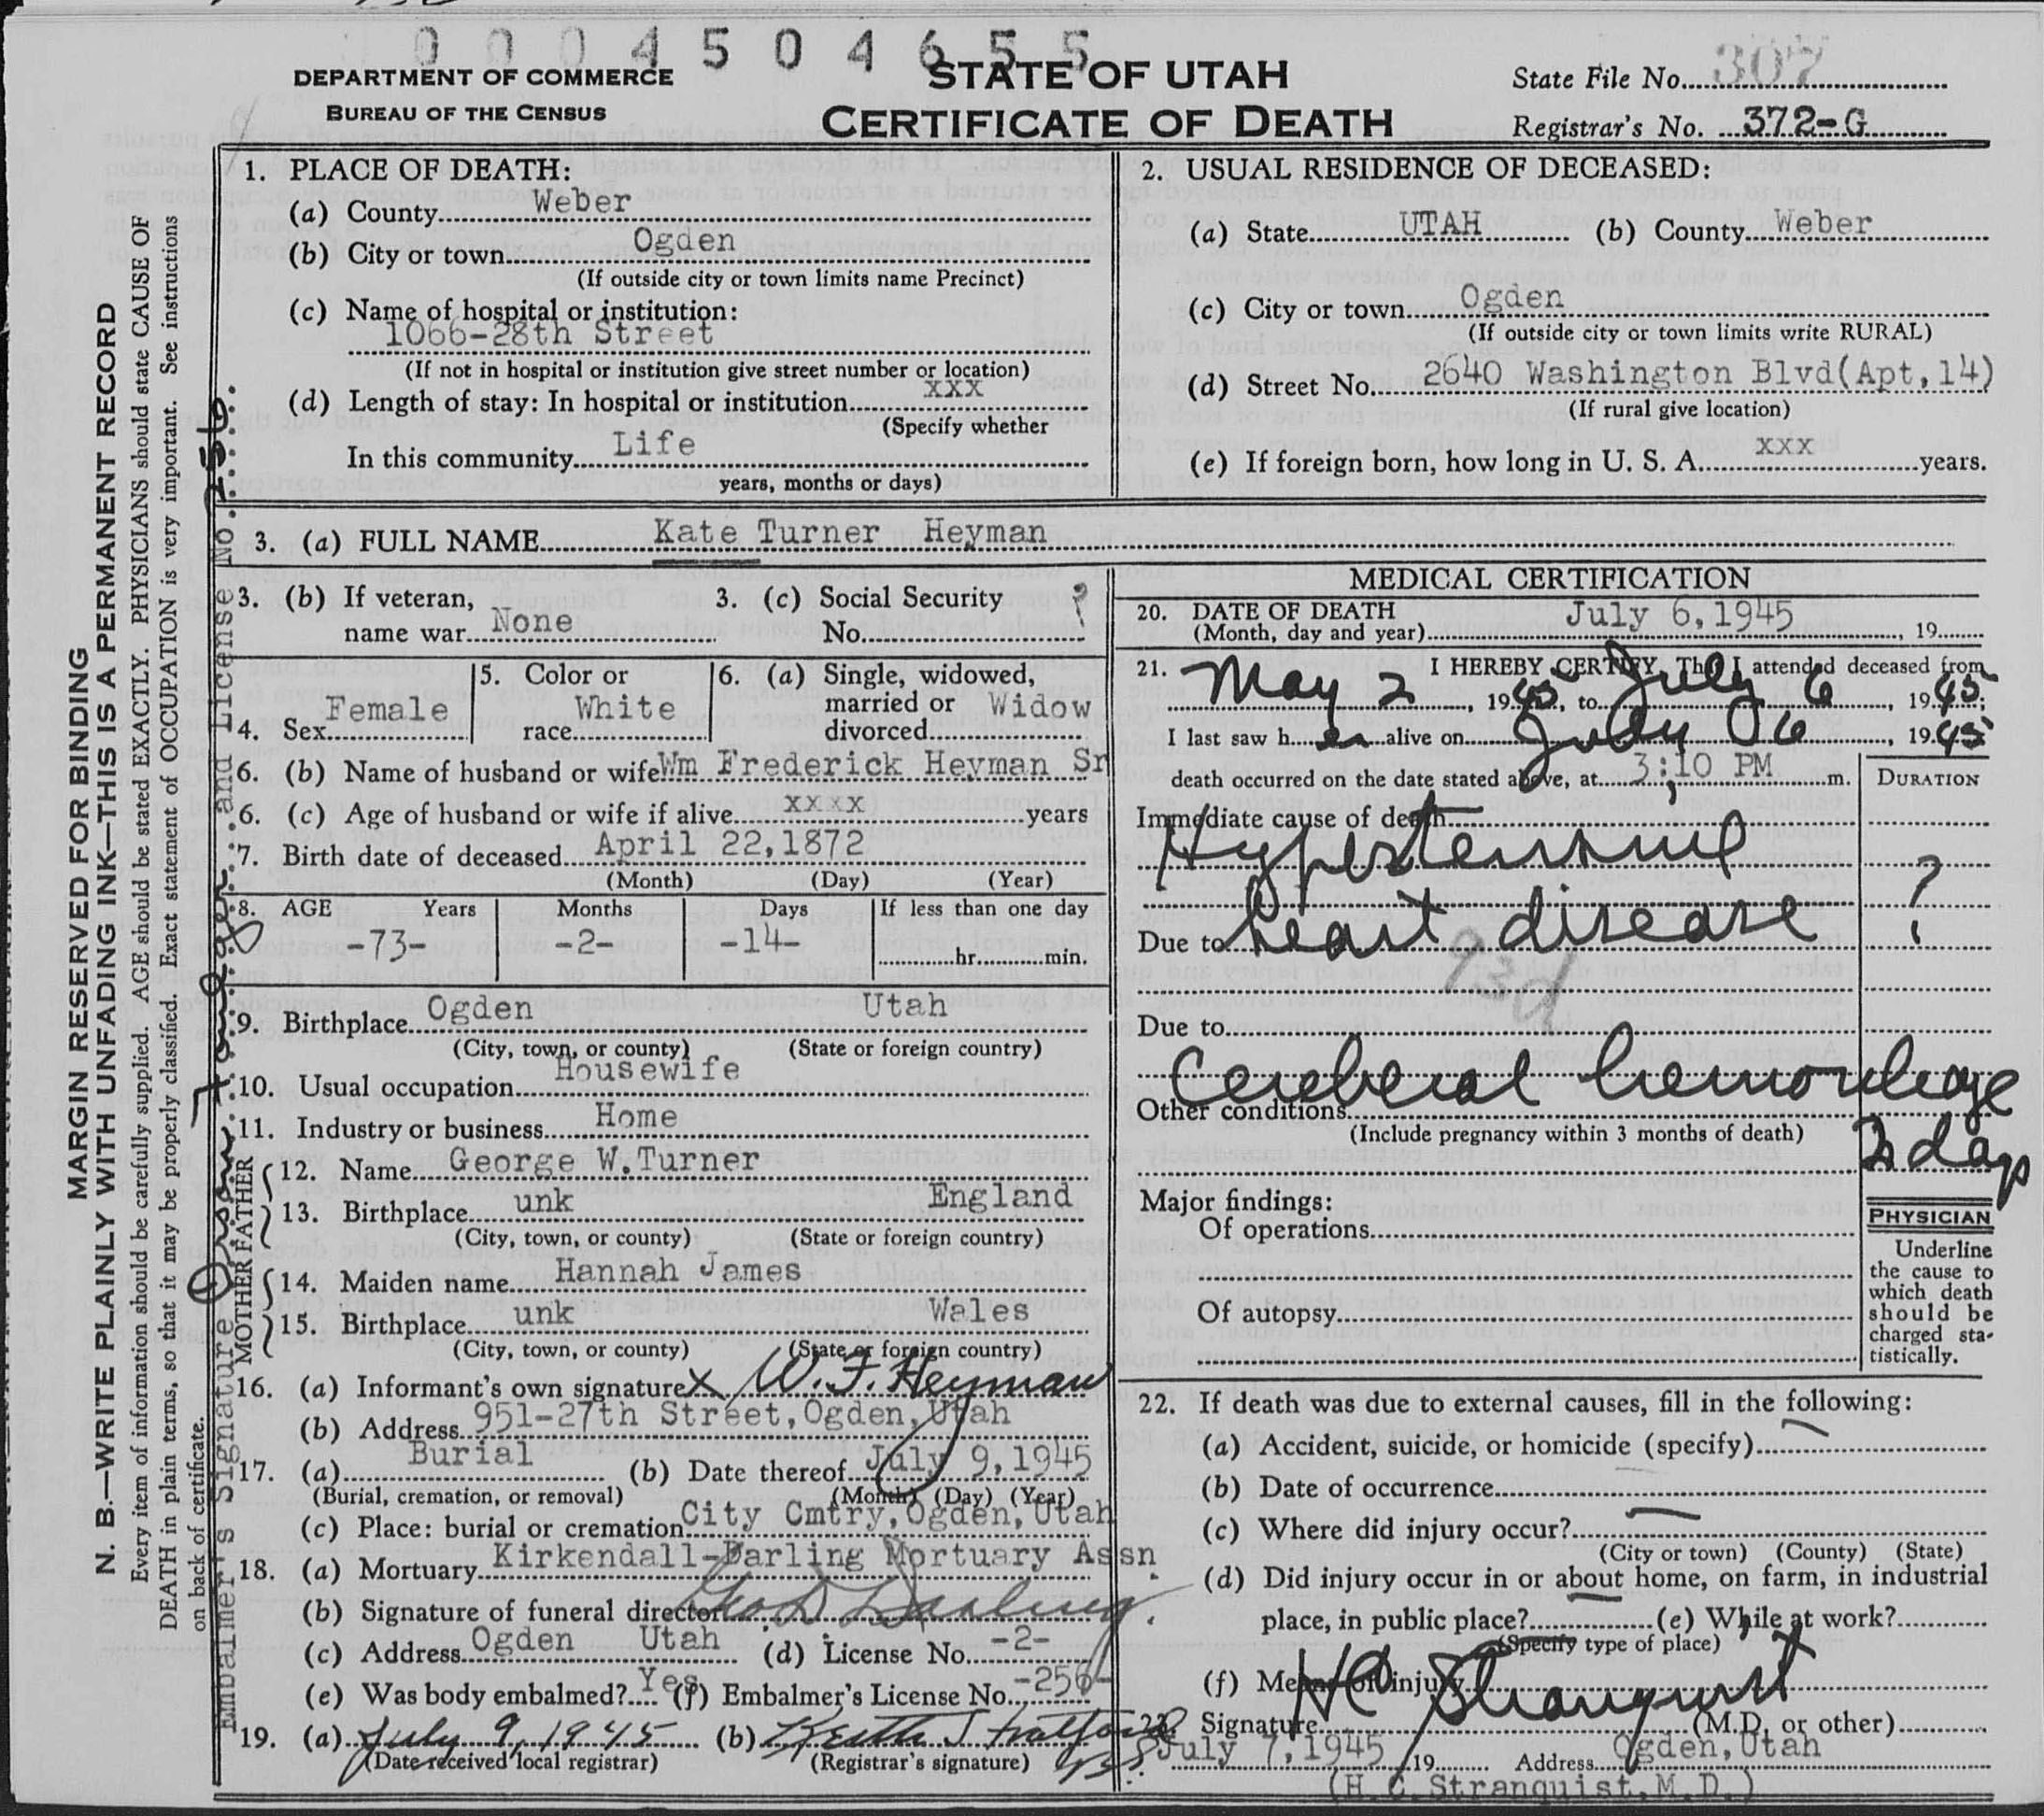 0 0 0 4 5 0 4 6 5 5
DEPARTMENT OF COMMERCE
BUREAU OF THE CENSUS
STATE OF UTAH
CERTIFICATE OF DEATH
State File No. 307
Registrar's No. 372-G
MARGIN RESERVED FOR BINDING
N. B.—WRITE PLAINLY WITH UNFADING INK—THIS IS A PERMANENT RECORD
Every item of information should be carefully supplied. AGE should be stated EXACTLY. PHYSICIANS should state CAUSE OF
DEATH in plain terms, so that it may be properly classified. Exact statement of OCCUPATION is very important. See instructions
on back of certificate.
Embalmer's Signature and License No.
1. PLACE OF DEATH:
(a) County Weber
(b) City or town Ogden
(If outside city or town limits name Precinct)
(c) Name of hospital or institution:
1066-28th Street
(If not in hospital or institution give street number or location)
(d) Length of stay: In hospital or institution xxx
(Specify whether
In this community Life
years, months or days)
2. USUAL RESIDENCE OF DECEASED:
(a) State UTAH (b) County Weber
(c) City or town Ogden
(If outside city or town limits write RURAL)
(d) Street No. 2640 Washington Blvd(Apt,14)
(If rural give location)
(e) If foreign born, how long in U. S. A. xxx years.
3. (a) FULL NAME Kate Turner Heyman
3. (b) If veteran,
name war None
3. (c) Social Security
No. ?
4. Sex Female
5. Color or
race White
6. (a) Single, widowed,
married or
divorced Widow
6. (b) Name of husband or wife Wm Frederick Heyman Sr
6. (c) Age of husband or wife if alive xxxx years
7. Birth date of deceased April 22,1872
(Month) (Day) (Year)
8. AGE Years Months Days If less than one day
-73- -2- -14- hr. min.
9. Birthplace Ogden Utah
(City, town, or county) (State or foreign country)
10. Usual occupation Housewife
11. Industry or business Home
FATHER
12. Name George W.Turner
13. Birthplace unk England
(City, town, or county) (State or foreign country)
MOTHER
14. Maiden name Hannah James
15. Birthplace unk Wales
(City, town, or county) (State or foreign country)
16. (a) Informant's own signature X W. F. Heyman
(b) Address 951-27th Street,Ogden,Utah
17. (a) Burial (b) Date thereof July 9,1945
(Burial, cremation, or removal) (Month) (Day) (Year)
(c) Place: burial or cremation City Cmtry,Ogden,Utah
18. (a) Mortuary Kirkendall-Darling Mortuary Assn
(b) Signature of funeral director Geo D Darling
(c) Address Ogden Utah (d) License No. -2-
(e) Was body embalmed? Yes (f) Embalmer's License No. -256-
19. (a) July 9, 1945 (b) Keith
(Date received local registrar) (Registrar's signature)
MEDICAL CERTIFICATION
20. DATE OF DEATH
(Month, day and year) July 6,1945, 19
21. I HEREBY CERTIFY, That I attended deceased from
May 2, 1945, to July 6, 1945;
I last saw her alive on July 6, 1945
death occurred on the date stated above, at 3:10 PM m.
DURATION
Immediate cause of death
Hypertensive
Due to heart disease ?
93d
Due to
Cerebral hemorrhage
Other conditions
(Include pregnancy within 3 months of death)
2 days
Major findings:
Of operations
Of autopsy
PHYSICIAN
Underline
the cause to
which death
should be
charged sta-
tistically.
22. If death was due to external causes, fill in the following:
(a) Accident, suicide, or homicide (specify)
(b) Date of occurrence
(c) Where did injury occur?
(City or town) (County) (State)
(d) Did injury occur in or about home, on farm, in industrial
place, in public place? (e) While at work?
(Specify type of place)
(f) Means of injury
23. Signature H C Stranquist (M.D. or other)
July 7,1945 19 Address Ogden,Utah
(H.C.Stranquist,M.D.)